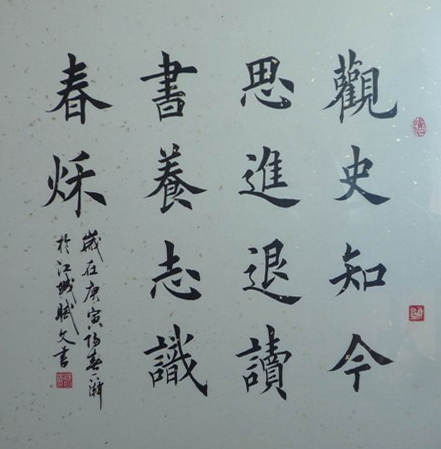 觀史知今
思進退讀
書養志識
春秌
歲在庚寅陽春漪
於江城賦文書